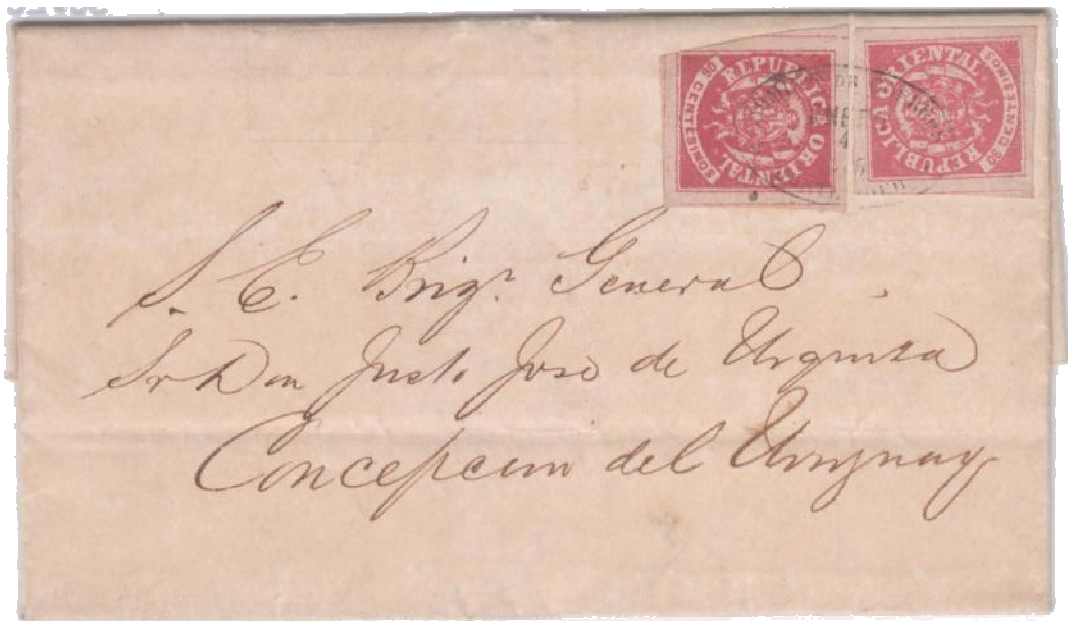 REPUBLICA ORIENTAL
REPUBLICA ORIENTAL
ENERO
4
S. E. Brigr. General
Sr Don Justo José de Urquiza
Concepcion del Uruguay